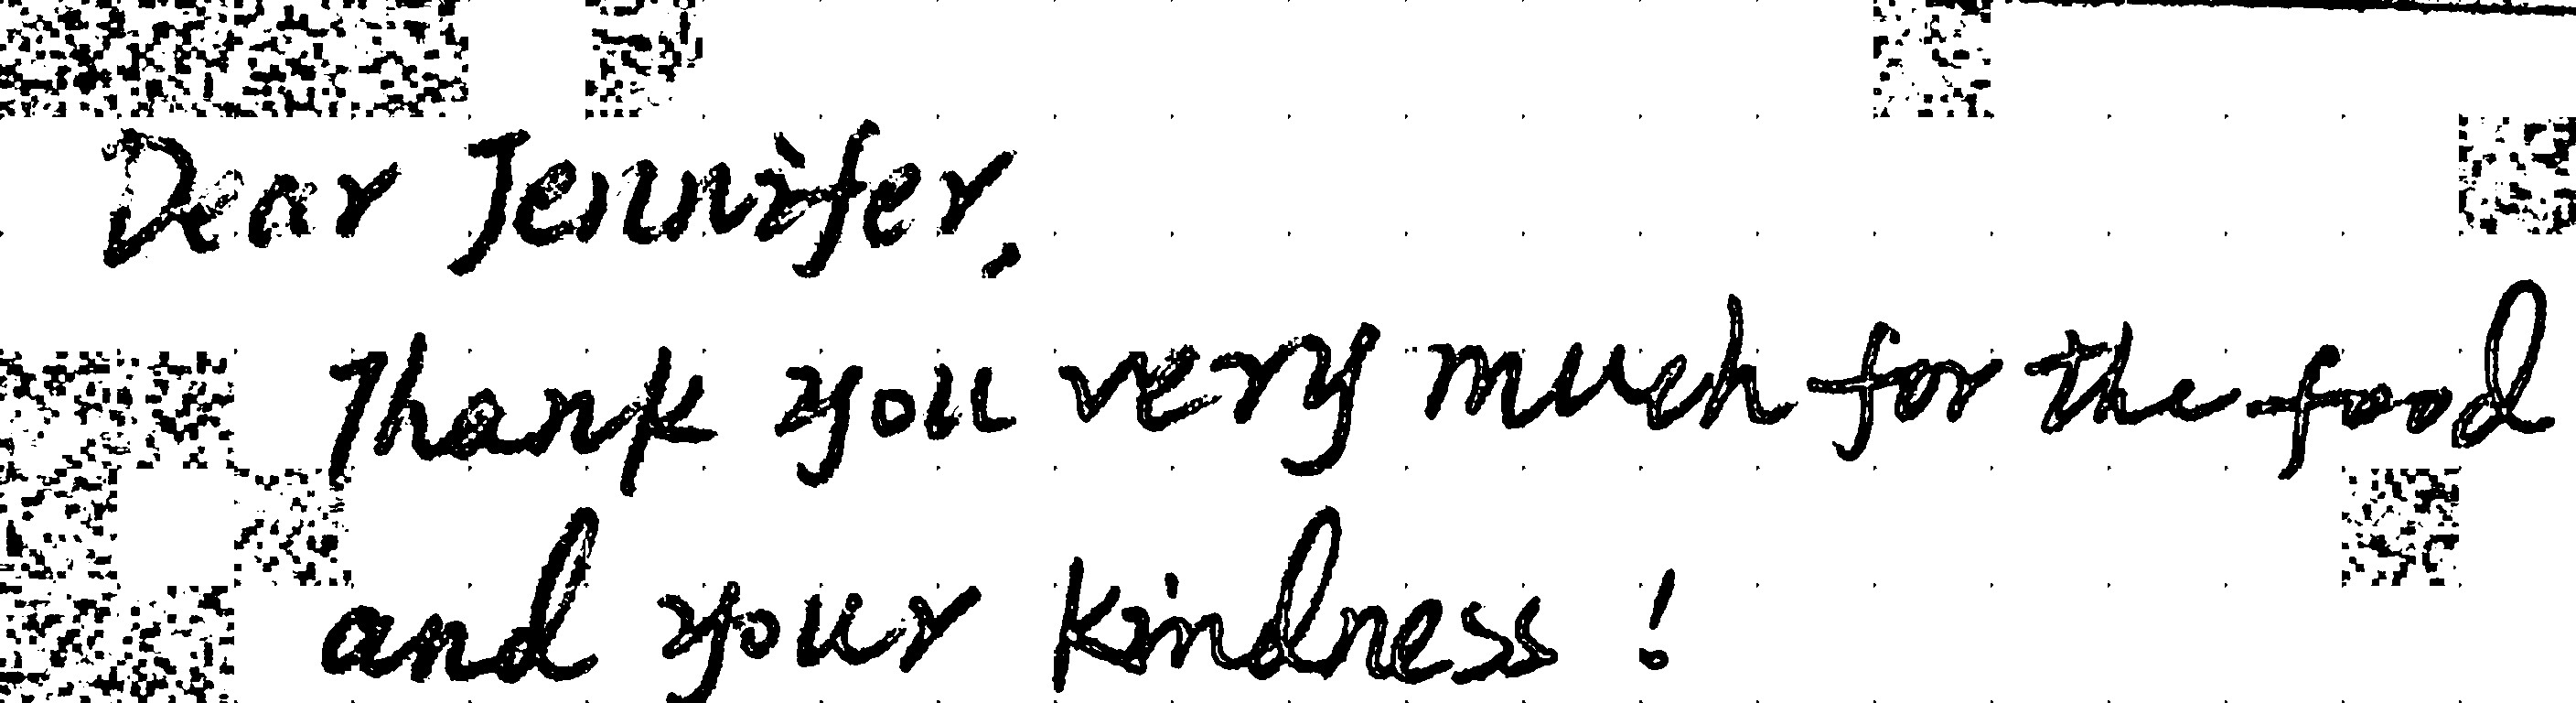 Dear Jennifer,
Thank you very much for the food
and your kindness!